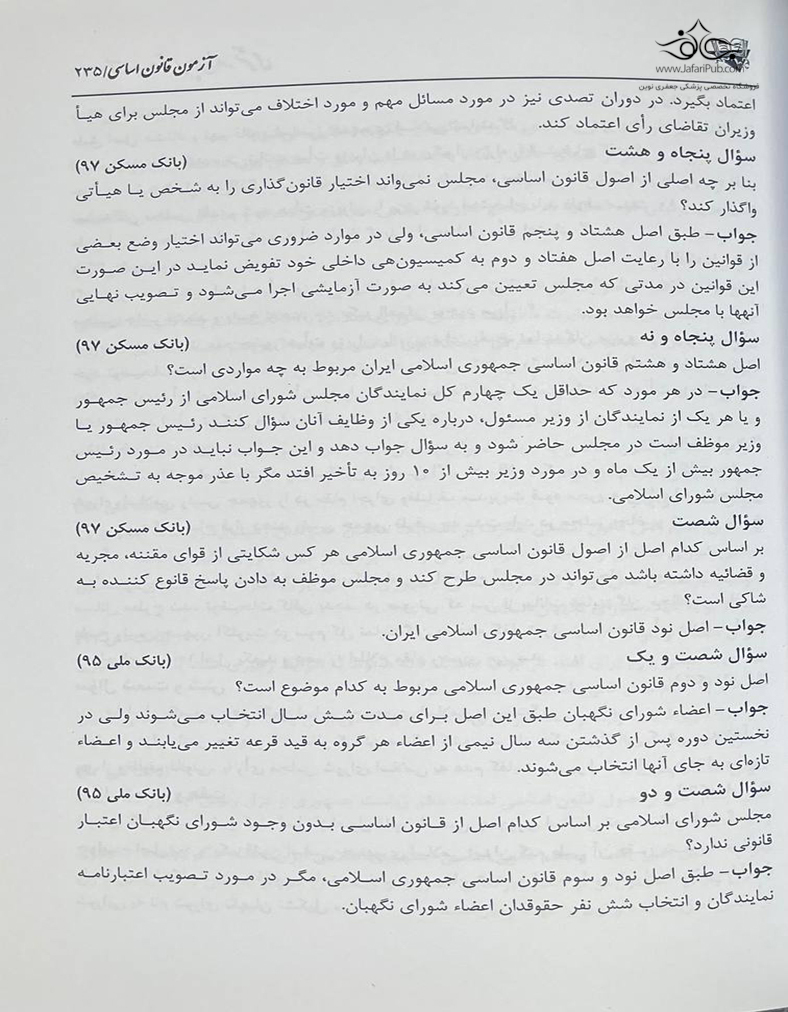 آزمون قانون اساسی/۲۳۵
www.JafariPub.com
فروشگاه تخصصی پزشکی جعفری نوین
اعتماد بگیرد. در دوران تصدی نیز در مورد مسائل مهم و مورد اختلاف می‌تواند از مجلس برای هیأ
وزیران تقاضای رأی اعتماد کند.
سؤال پنجاه و هشت (بانک مسکن ۹۷)
بنا بر چه اصلی از اصول قانون اساسی، مجلس نمی‌واند اختیار قانون‌گذاری را به شخص یا هیأتی
واگذار کند؟
جواب- طبق اصل هشتاد و پنجم قانون اساسی، ولی در موارد ضروری می‌تواند اختیار وضع بعضی
از قوانین را با رعایت اصل هفتاد و دوم به کمیسیون‌هی داخلی خود تفویض نماید در این صورت
این قوانین در مدتی که مجلس تعیین می‌کند به صورت آزمایشی اجرا می‌شود و تصویب نهایی
آنهها با مجلس خواهد بود.
سؤال پنجاه و نه (بانک مسکن ۹۷)
اصل هشتاد و هشتم قانون اساسی جمهوری اسلامی ایران مربوط به چه مواردی است؟
جواب- در هر مورد که حداقل یک چهارم کل نمایندگان مجلس شورای اسلامی از رئیس جمهور
و یا هر یک از نمایندگان از وزیر مسئول، درباره یکی از وظایف آنان سؤال کنند رئیس جمهور یا
وزیر موظف است در مجلس حاضر شود و به سؤال جواب دهد و این جواب نباید در مورد رئیس
جمهور بیش از یک ماه و در مورد وزیر بیش از ۱۰ روز به تأخیر افتد مگر با عذر موجه به تشخیص
مجلس شورای اسلامی.
سؤال شصت (بانک مسکن ۹۷)
بر اساس کدام اصل از اصول قانون اساسی جمهوری اسلامی هر کس شکایتی از قوای مقننه، مجریه
و قضائیه داشته باشد می‌تواند در مجلس طرح کند و مجلس موظف به دادن پاسخ قانوع کننده به
شاکی است؟
جواب- اصل نود قانون اساسی جمهوری اسلامی ایران.
سؤال شصت و یک (بانک ملی ۹۵)
اصل نود و دوم قانون اساسی جمهوری اسلامی مربوط به کدام موضوع است؟
جواب- اعضاء شورای نگهبان طبق این اصل برای مدت شش سال انتخاب می‌شوند ولی در
نخستین دوره پس از گذشتن سه سال نیمی از اعضاء هر گروه به قید قرعه تغییر می‌یابند و اعضاء
تازه‌ای به جای آنها انتخاب می‌شوند.
سؤال شصت و دو (بانک ملی ۹۵)
مجلس شورای اسلامی بر اساس کدام اصل از قانون اساسی بدون وجود شورای نگهبان اعتبار
قانونی ندارد؟
جواب- طبق اصل نود و سوم قانون اساسی جمهوری اسلامی، مگر در مورد تصویب اعتبارنامه
نمایندگان و انتخاب شش نفر حقوقدان اعضاء شورای نگهبان.